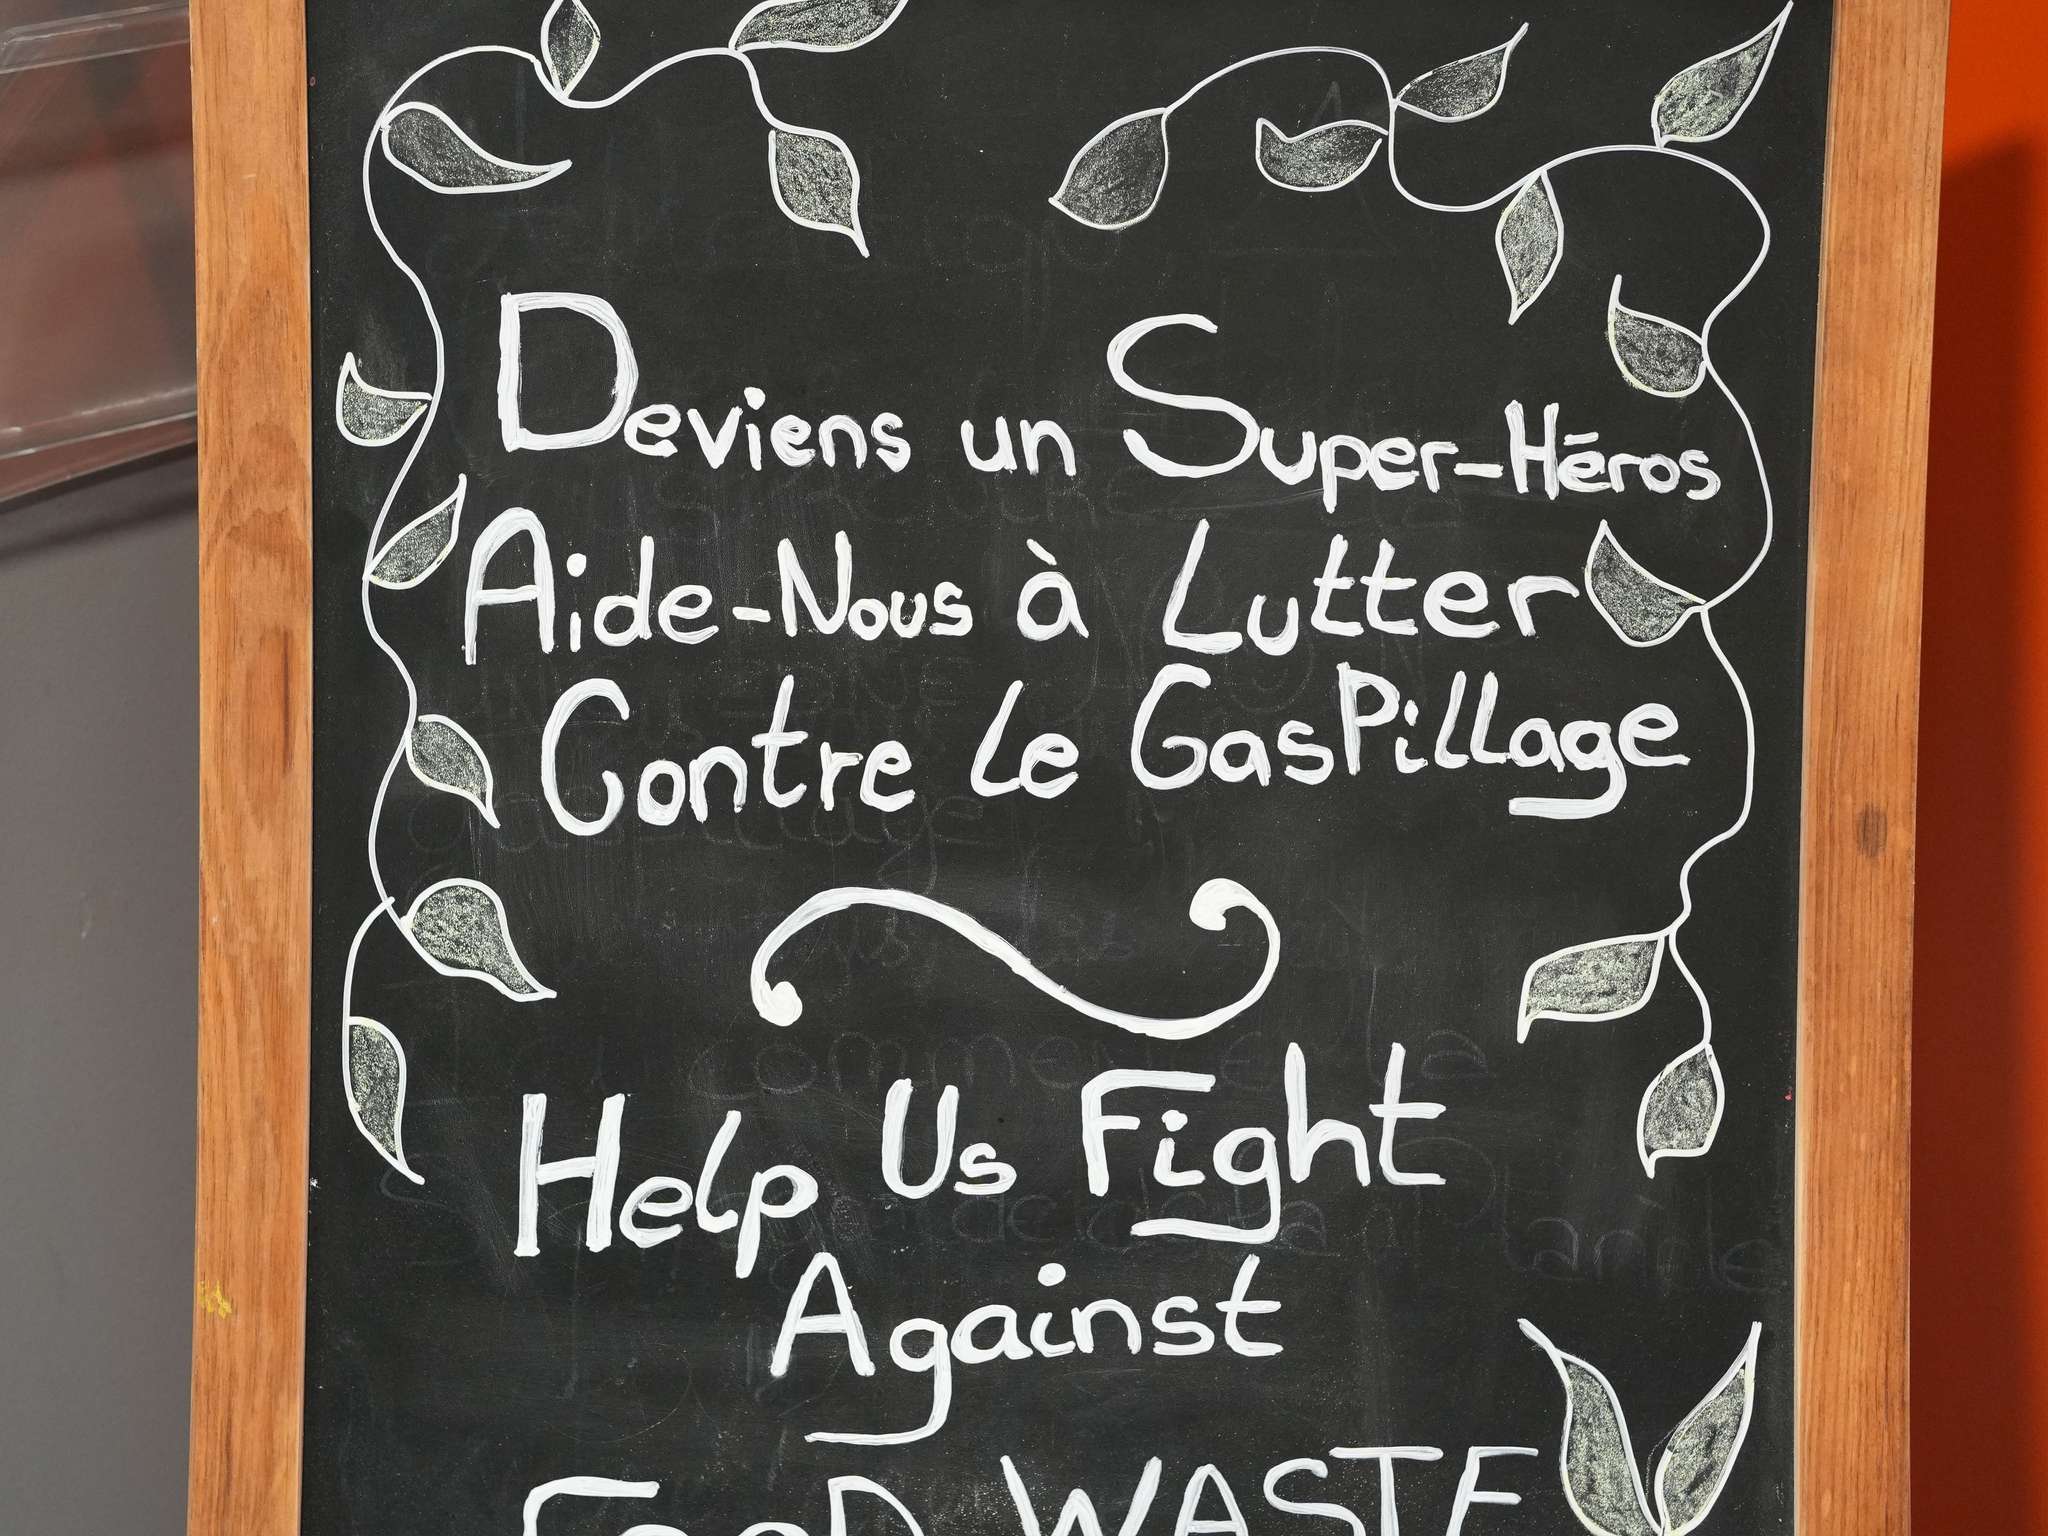 Deviens un Super-Héros
Aide-Nous à Lutter
Contre le GasPillage
Help Us Fight
Against
FOOD WASTE